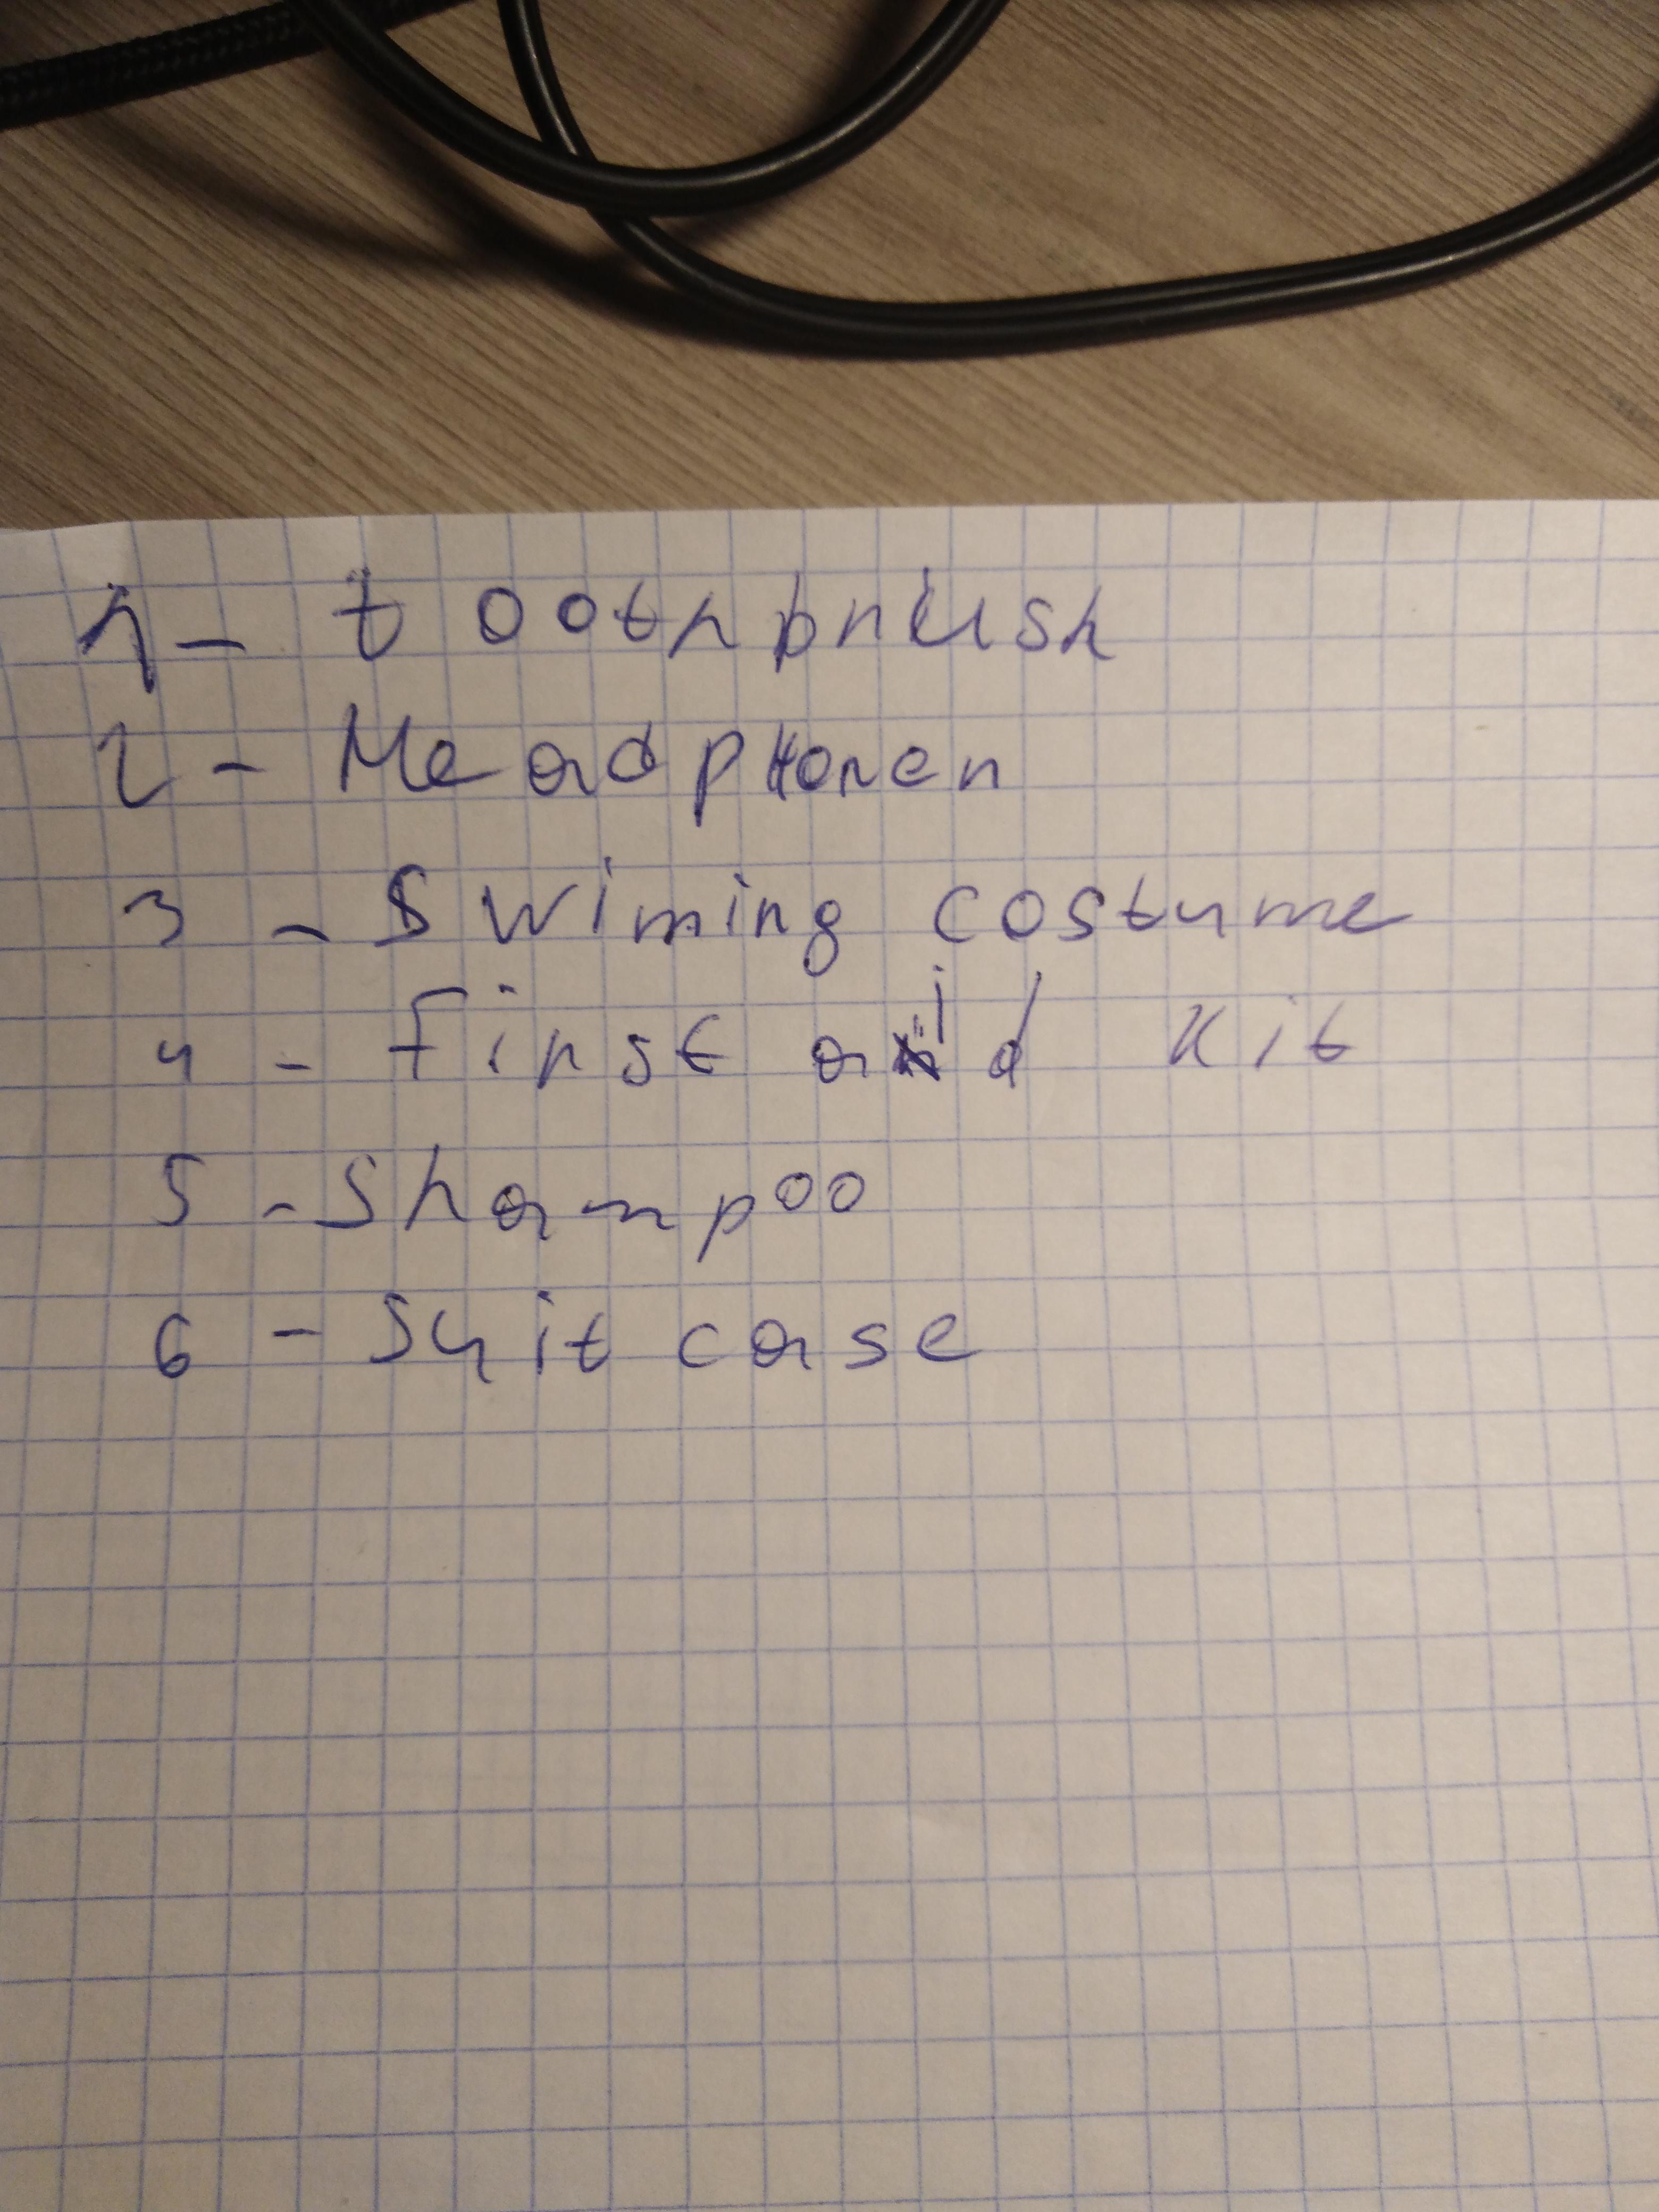 1 - toothbrush
2 - Headphonen
3 - Swiming costume
4 - First aid Kit
5 - Shampoo
6 - Suit case